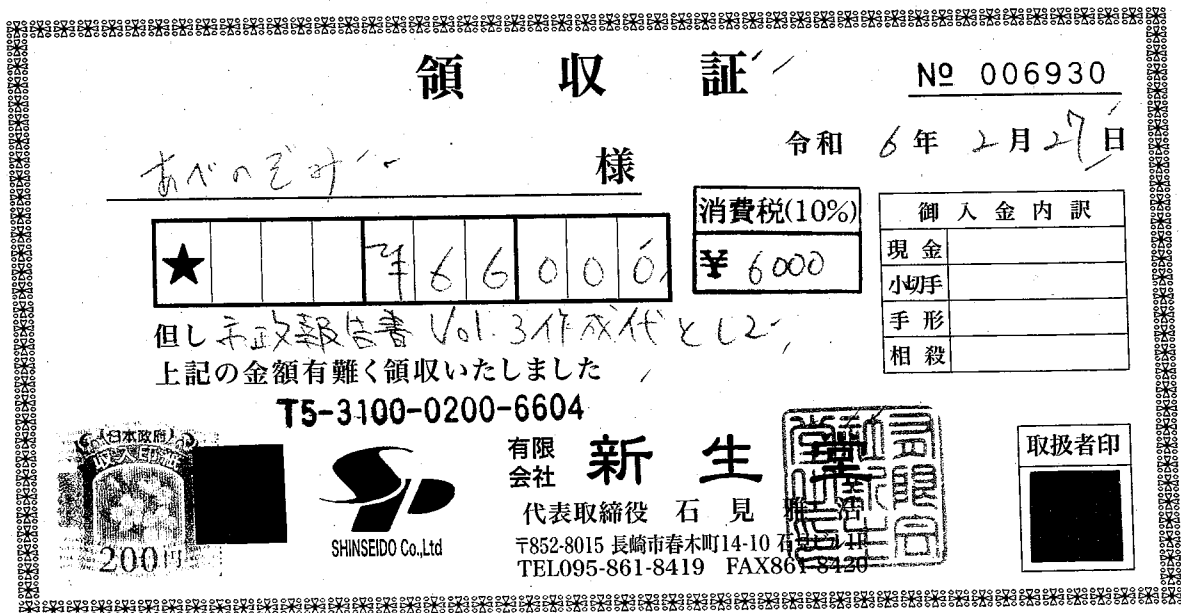 領収証
№ 006930
令和 6年 2月27日
あべのぞみ 様
★ ¥66000
消費税(10%)
¥ 6000
御入金内訳
現金
小切手
手形
相殺
但し 市政報告書 Vol.3作成代として
上記の金額有難く領収いたしました
T5-3100-0200-6604
日本政府
収入印紙
200円
SHINSEIDO Co.,Ltd
有限会社 新生堂
代表取締役 石見雅浩
〒852-8015 長崎市春木町14-10 石見ビル1F
TEL095-861-8419 FAX861-8420
取扱者印